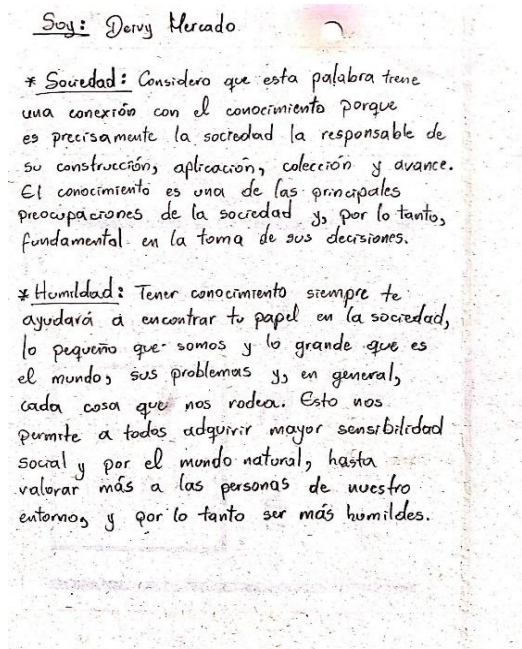 Soy: Dervy Mercado
* Sociedad: Considero que esta palabra tiene
una conexión con el conocimiento porque
es precisamente la sociedad la responsable de
su construcción, aplicación, colección y avance.
El conocimiento es una de las principales
preocupaciones de la sociedad y, por lo tanto,
fundamental en la toma de sus decisiones.
* Humildad: Tener conocimiento siempre te
ayudará a encontrar tu papel en la sociedad,
lo pequeño que somos y lo grande que es
el mundo, sus problemas y, en general,
cada cosa que nos rodea. Esto nos
permite a todos adquirir mayor sensibilidad
social y por el mundo natural, hasta
valorar más a las personas de nuestro
entorno, y por lo tanto ser más humildes.